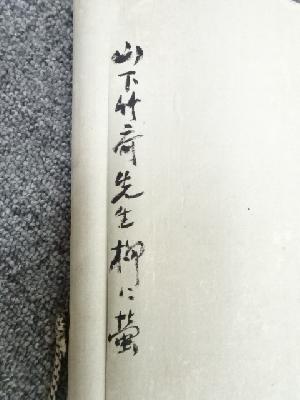 山下竹斎先生柳ニ蛍